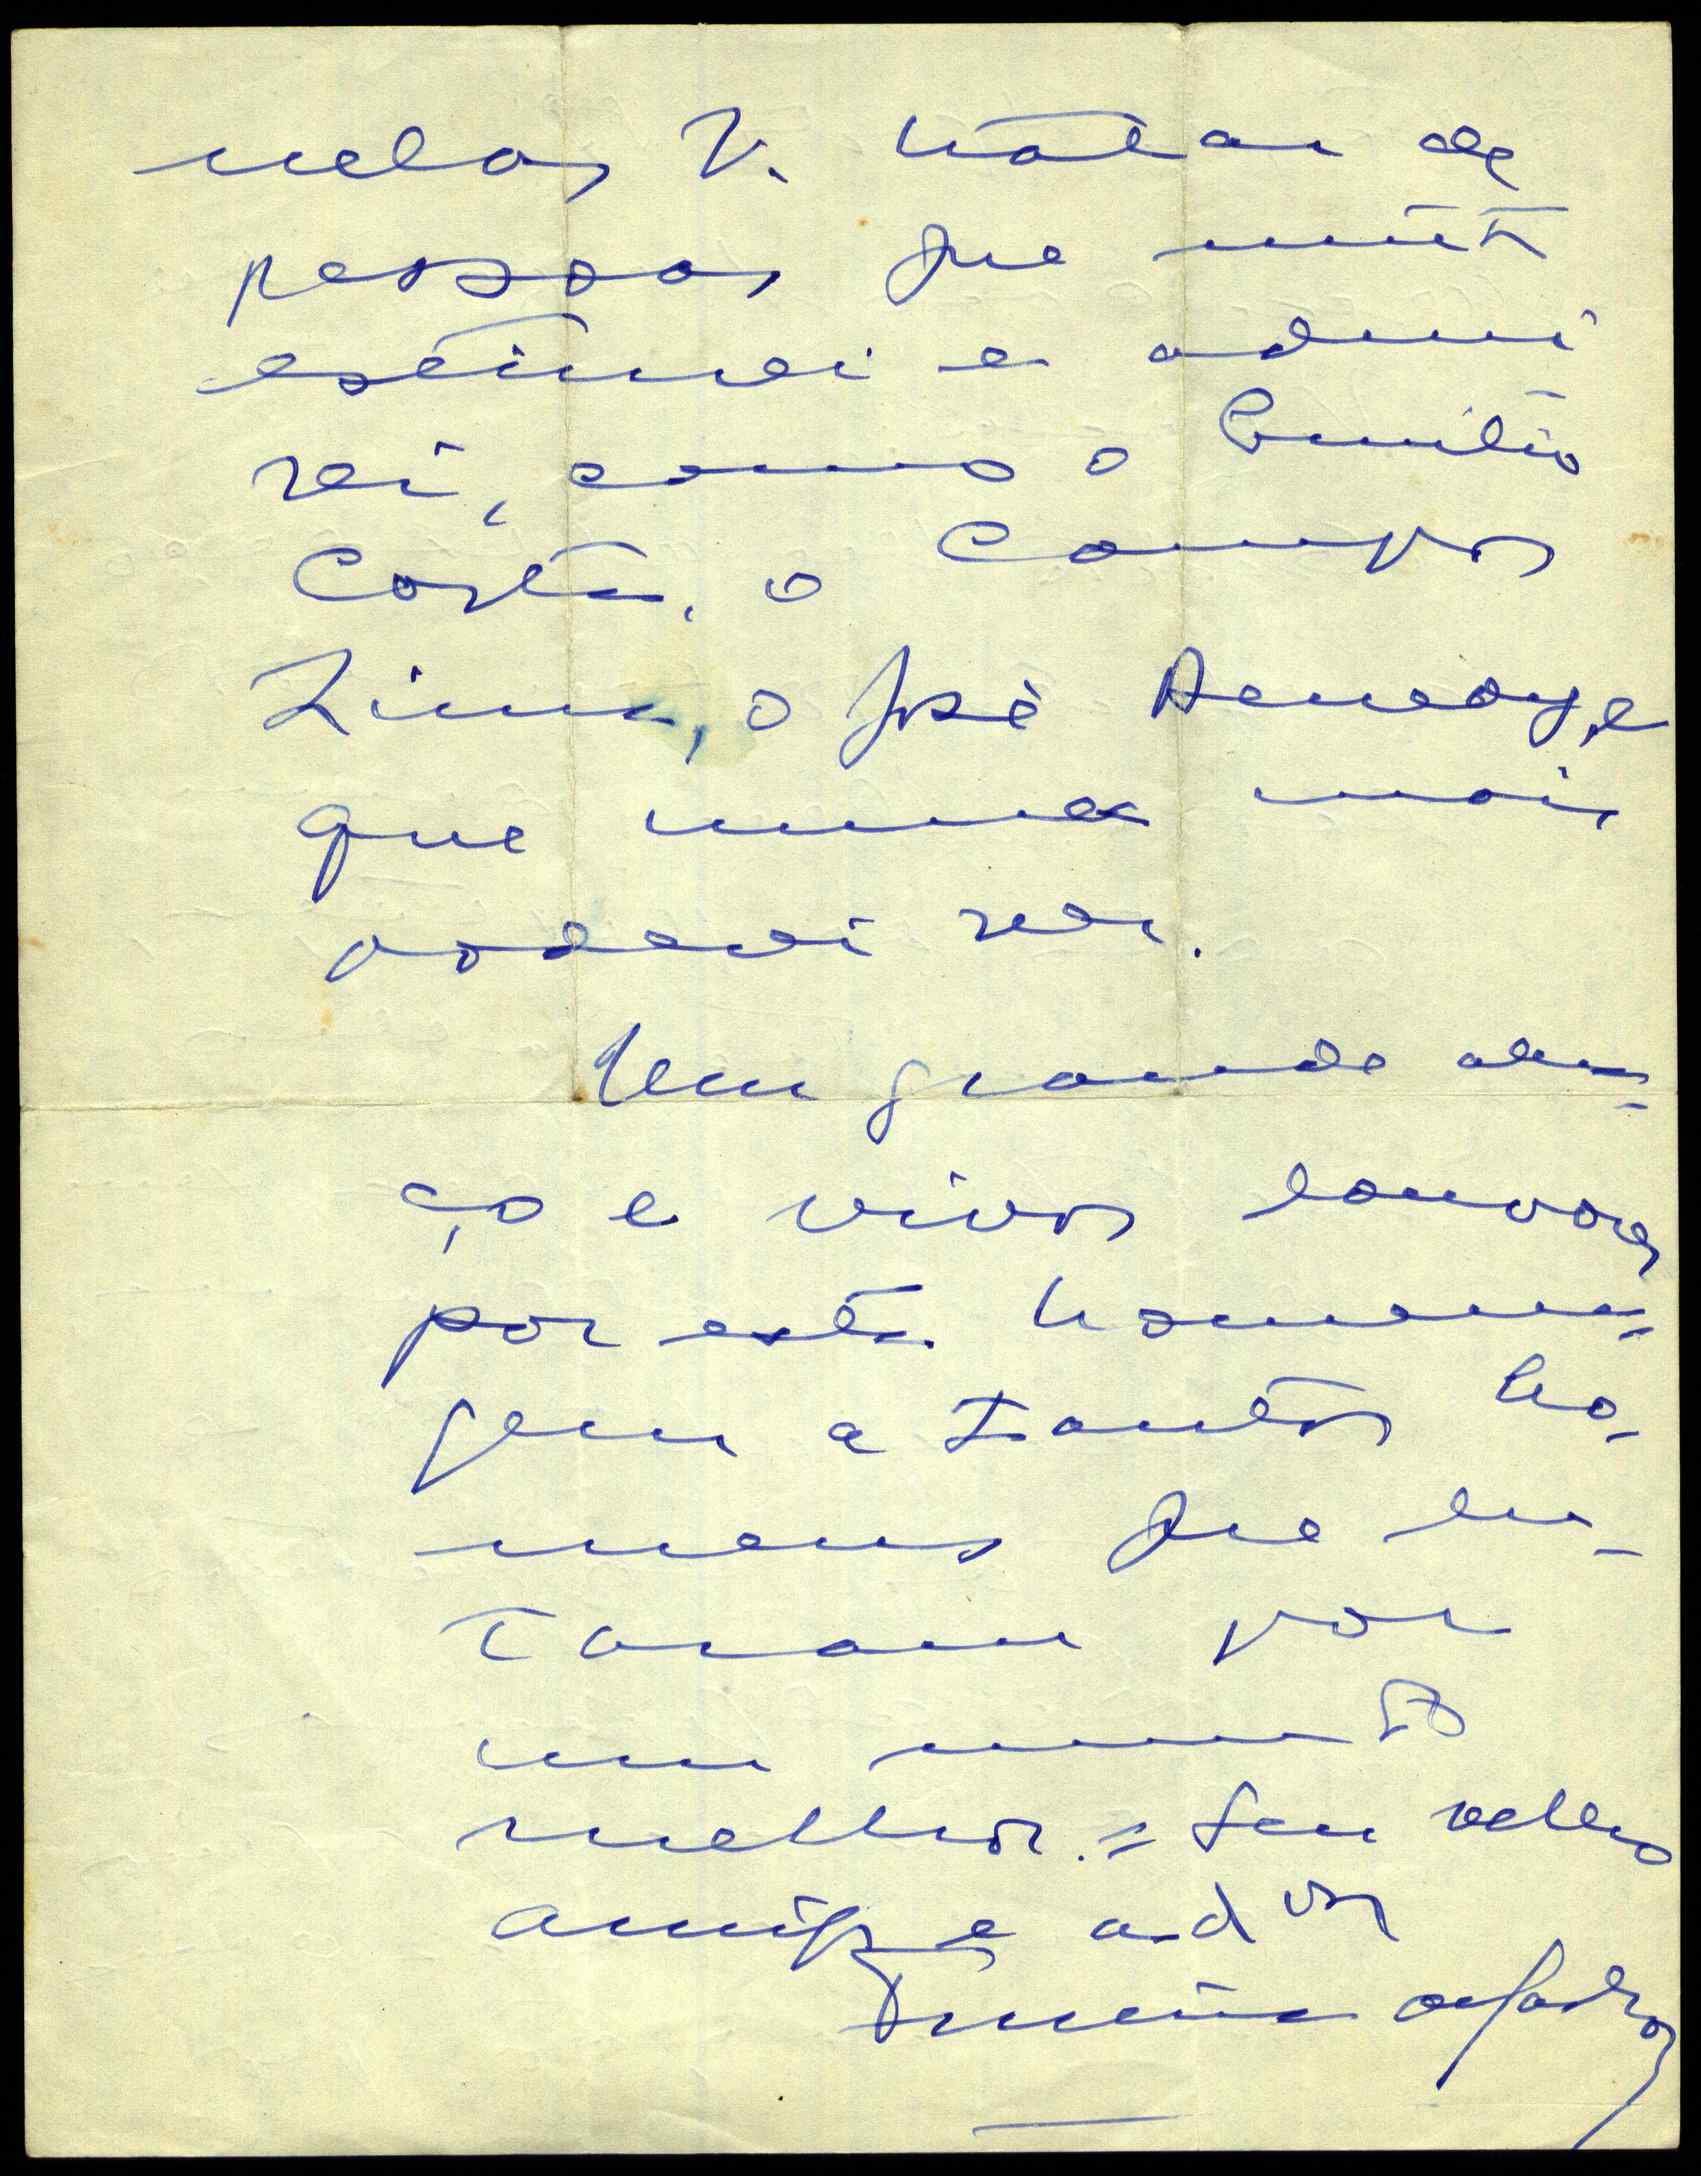 nelas V. tratar de
pessoas que muito
estimei e admi-
rei, como o Emílio
Costa, o Campos
Lima, o José Benedy, e
que nunca mais
poderei ver.
Um grande abra-
ço e vivos louvores
por esta homena-
gem a tantos ho-
mens que lu-
taram por
um mundo
melhor. = Seu velho
amigo e ador
Ferreira de Castro